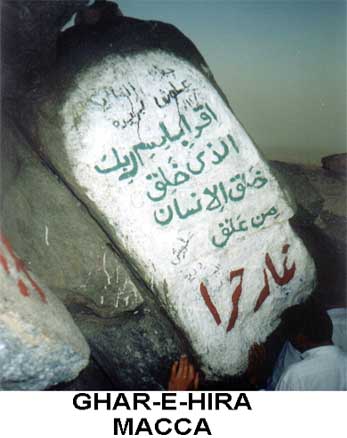 اقرأ باسم ربك
الذي خلق
خلق الانسان
من علق
غار حرا
GHAR-E-HIRA
MACCA